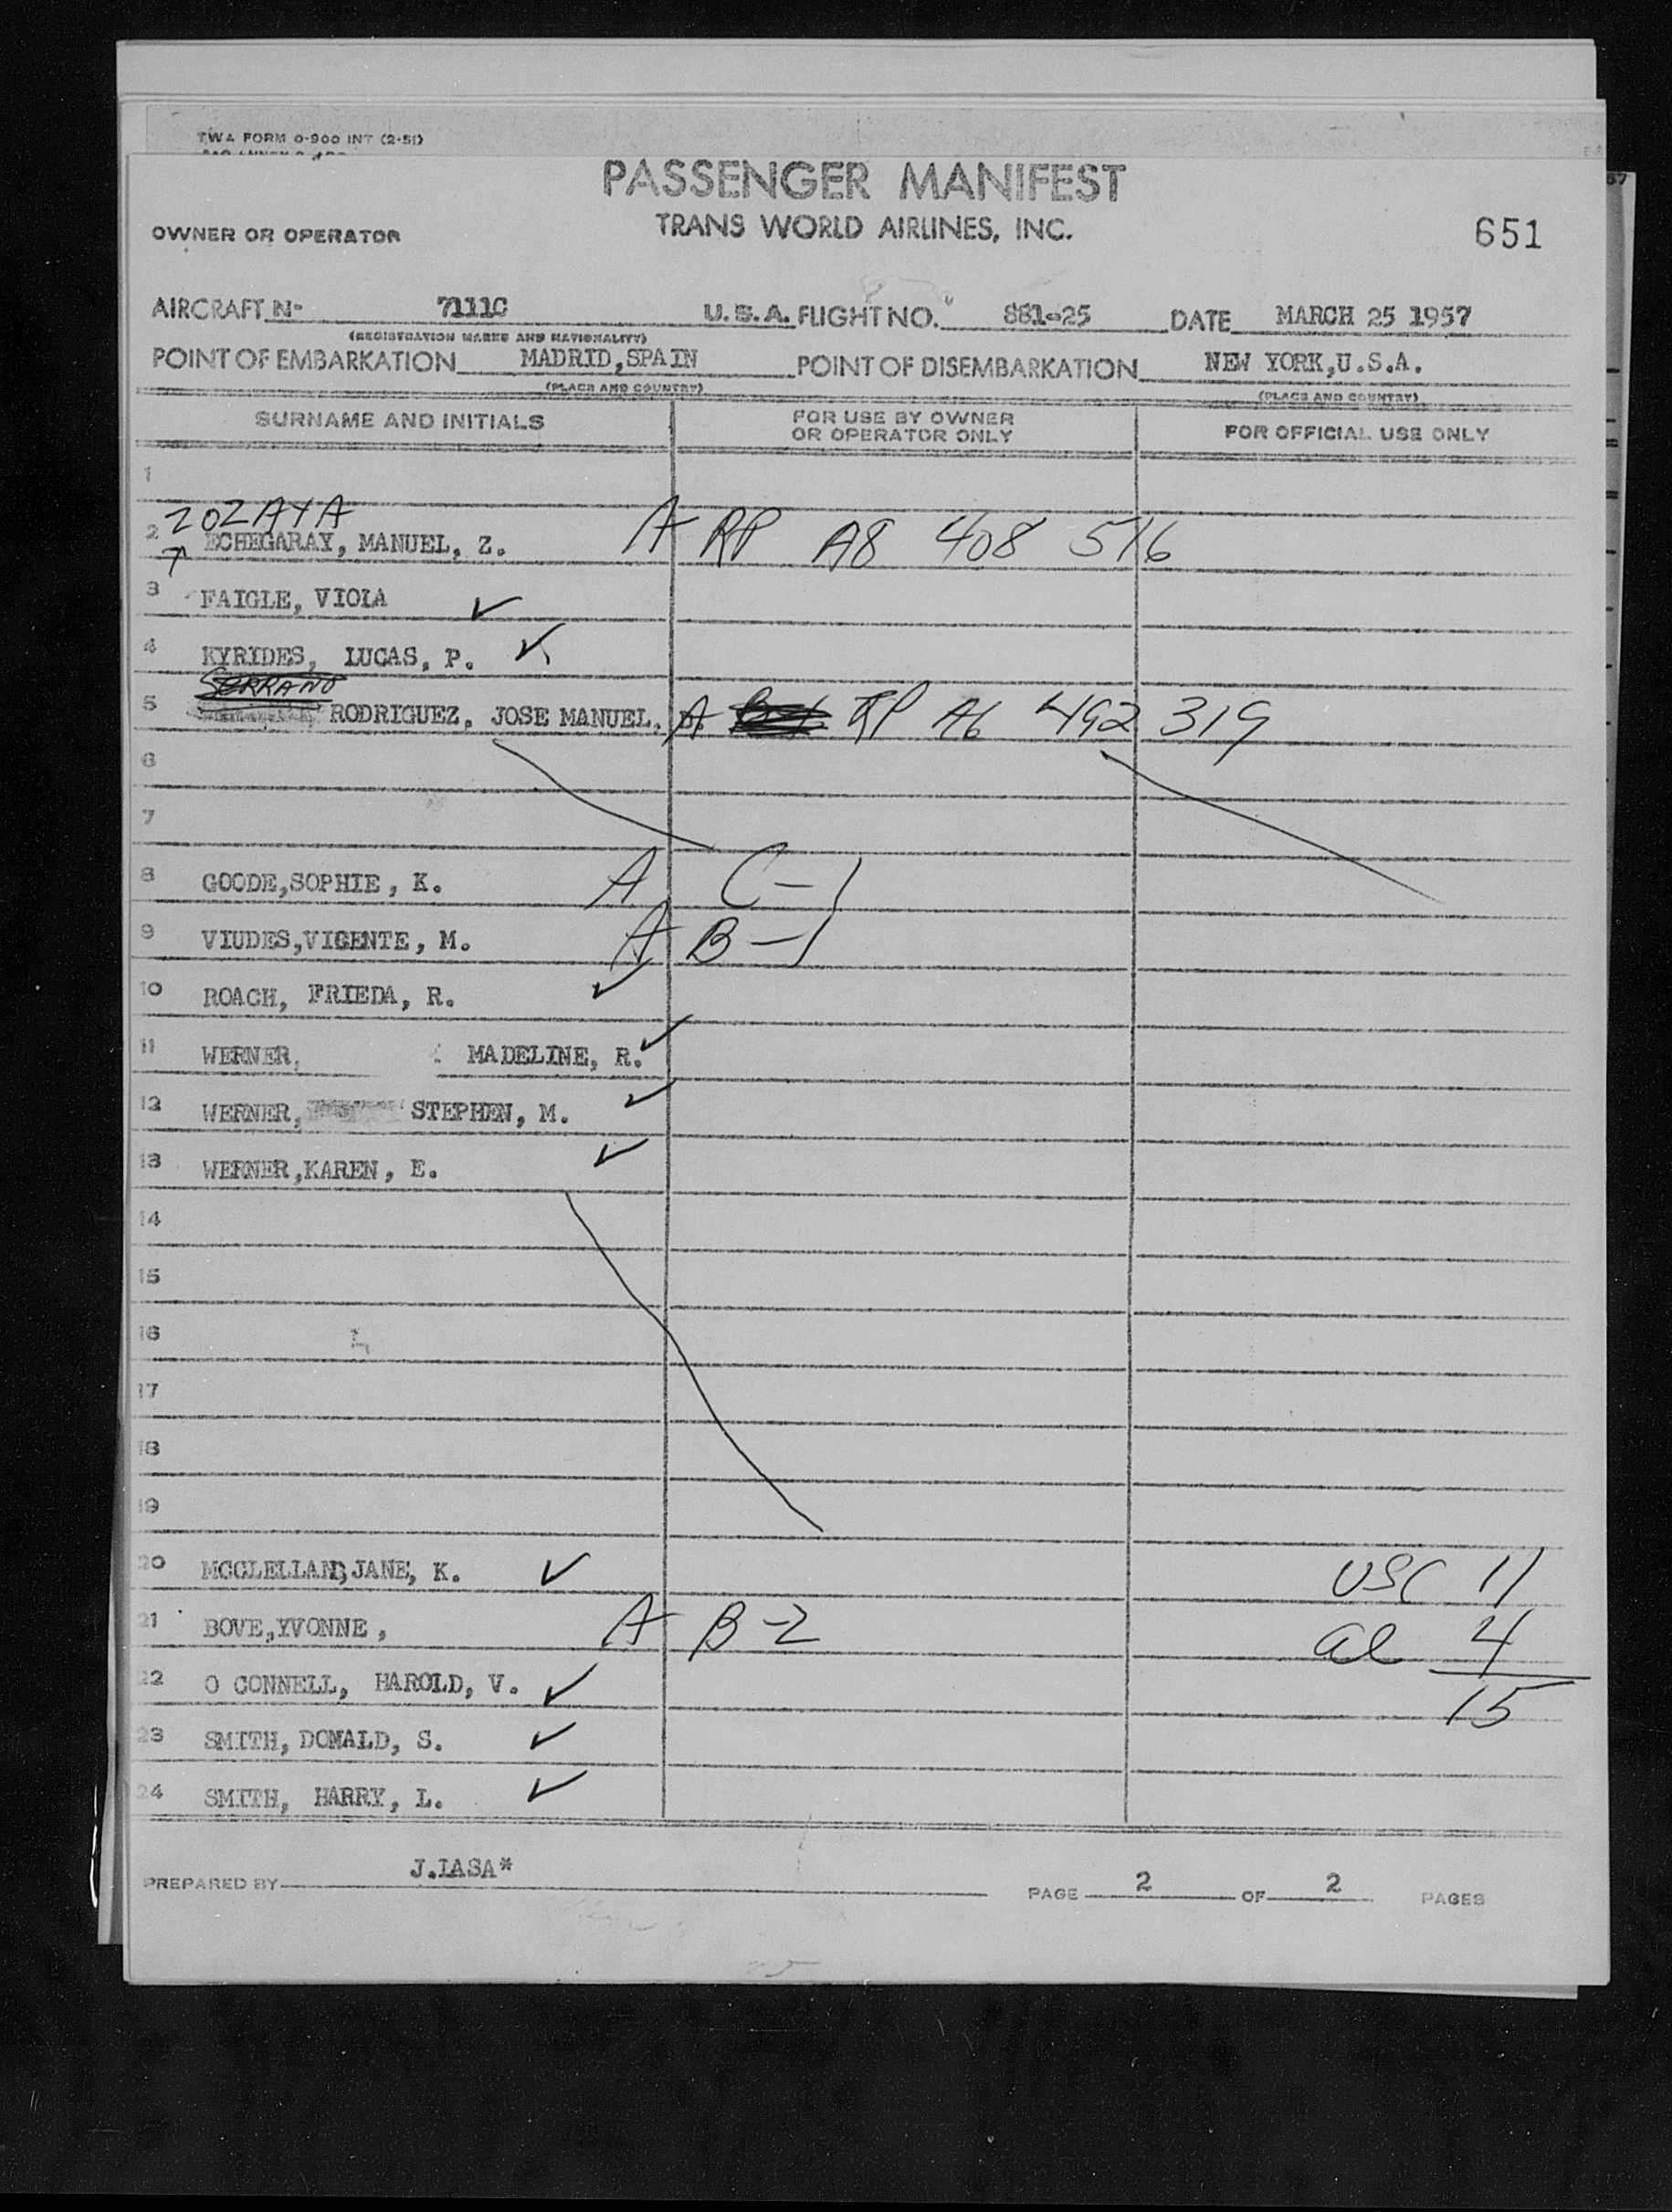 TWA FORM 0-900 INT (2-51)
PASSENGER MANIFEST
OWNER OR OPERATOR TRANS WORLD AIRLINES, INC. 651
AIRCRAFT Nº 7111C U.S.A. FLIGHT NO. 881-25 DATE MARCH 25 1957
(REGISTRATION MARKS AND NATIONALITY)
POINT OF EMBARKATION MADRID,SPAIN POINT OF DISEMBARKATION NEW YORK,U.S.A.
(PLACE AND COUNTRY) (PLACE AND COUNTRY)
SURNAME AND INITIALS FOR USE BY OWNER OR OPERATOR ONLY FOR OFFICIAL USE ONLY
1
ZOZAYA
2 ECHEGARAY, MANUEL, Z. A RP A8 408 516
3 FAIGLE, VIOLA ✓
4 KYRIDES, LUCAS, P. ✓
SERRANO
5 RODRIGUEZ, JOSE MANUEL. A RP A6 492 319
6
7
8 GOODE,SOPHIE, K. A C-1
9 VIUDES,VICENTE, M. A B-1
10 ROACH, FRIEDA, R. ✓
11 WERNER, MADELINE, R. ✓
12 WERNER, STEPHEN, M. ✓
13 WERNER,KAREN, E. ✓
14
15
16
17
18
19
20 MCCLELLAND,JANE, K. ✓ USC 11
21 BOVE,YVONNE, A B-2 al 4
22 O CONNELL, HAROLD, V. ✓ 15
23 SMITH, DONALD, S. ✓
24 SMITH, HARRY, L. ✓
PREPARED BY J.IASA* PAGE 2 OF 2 PAGES